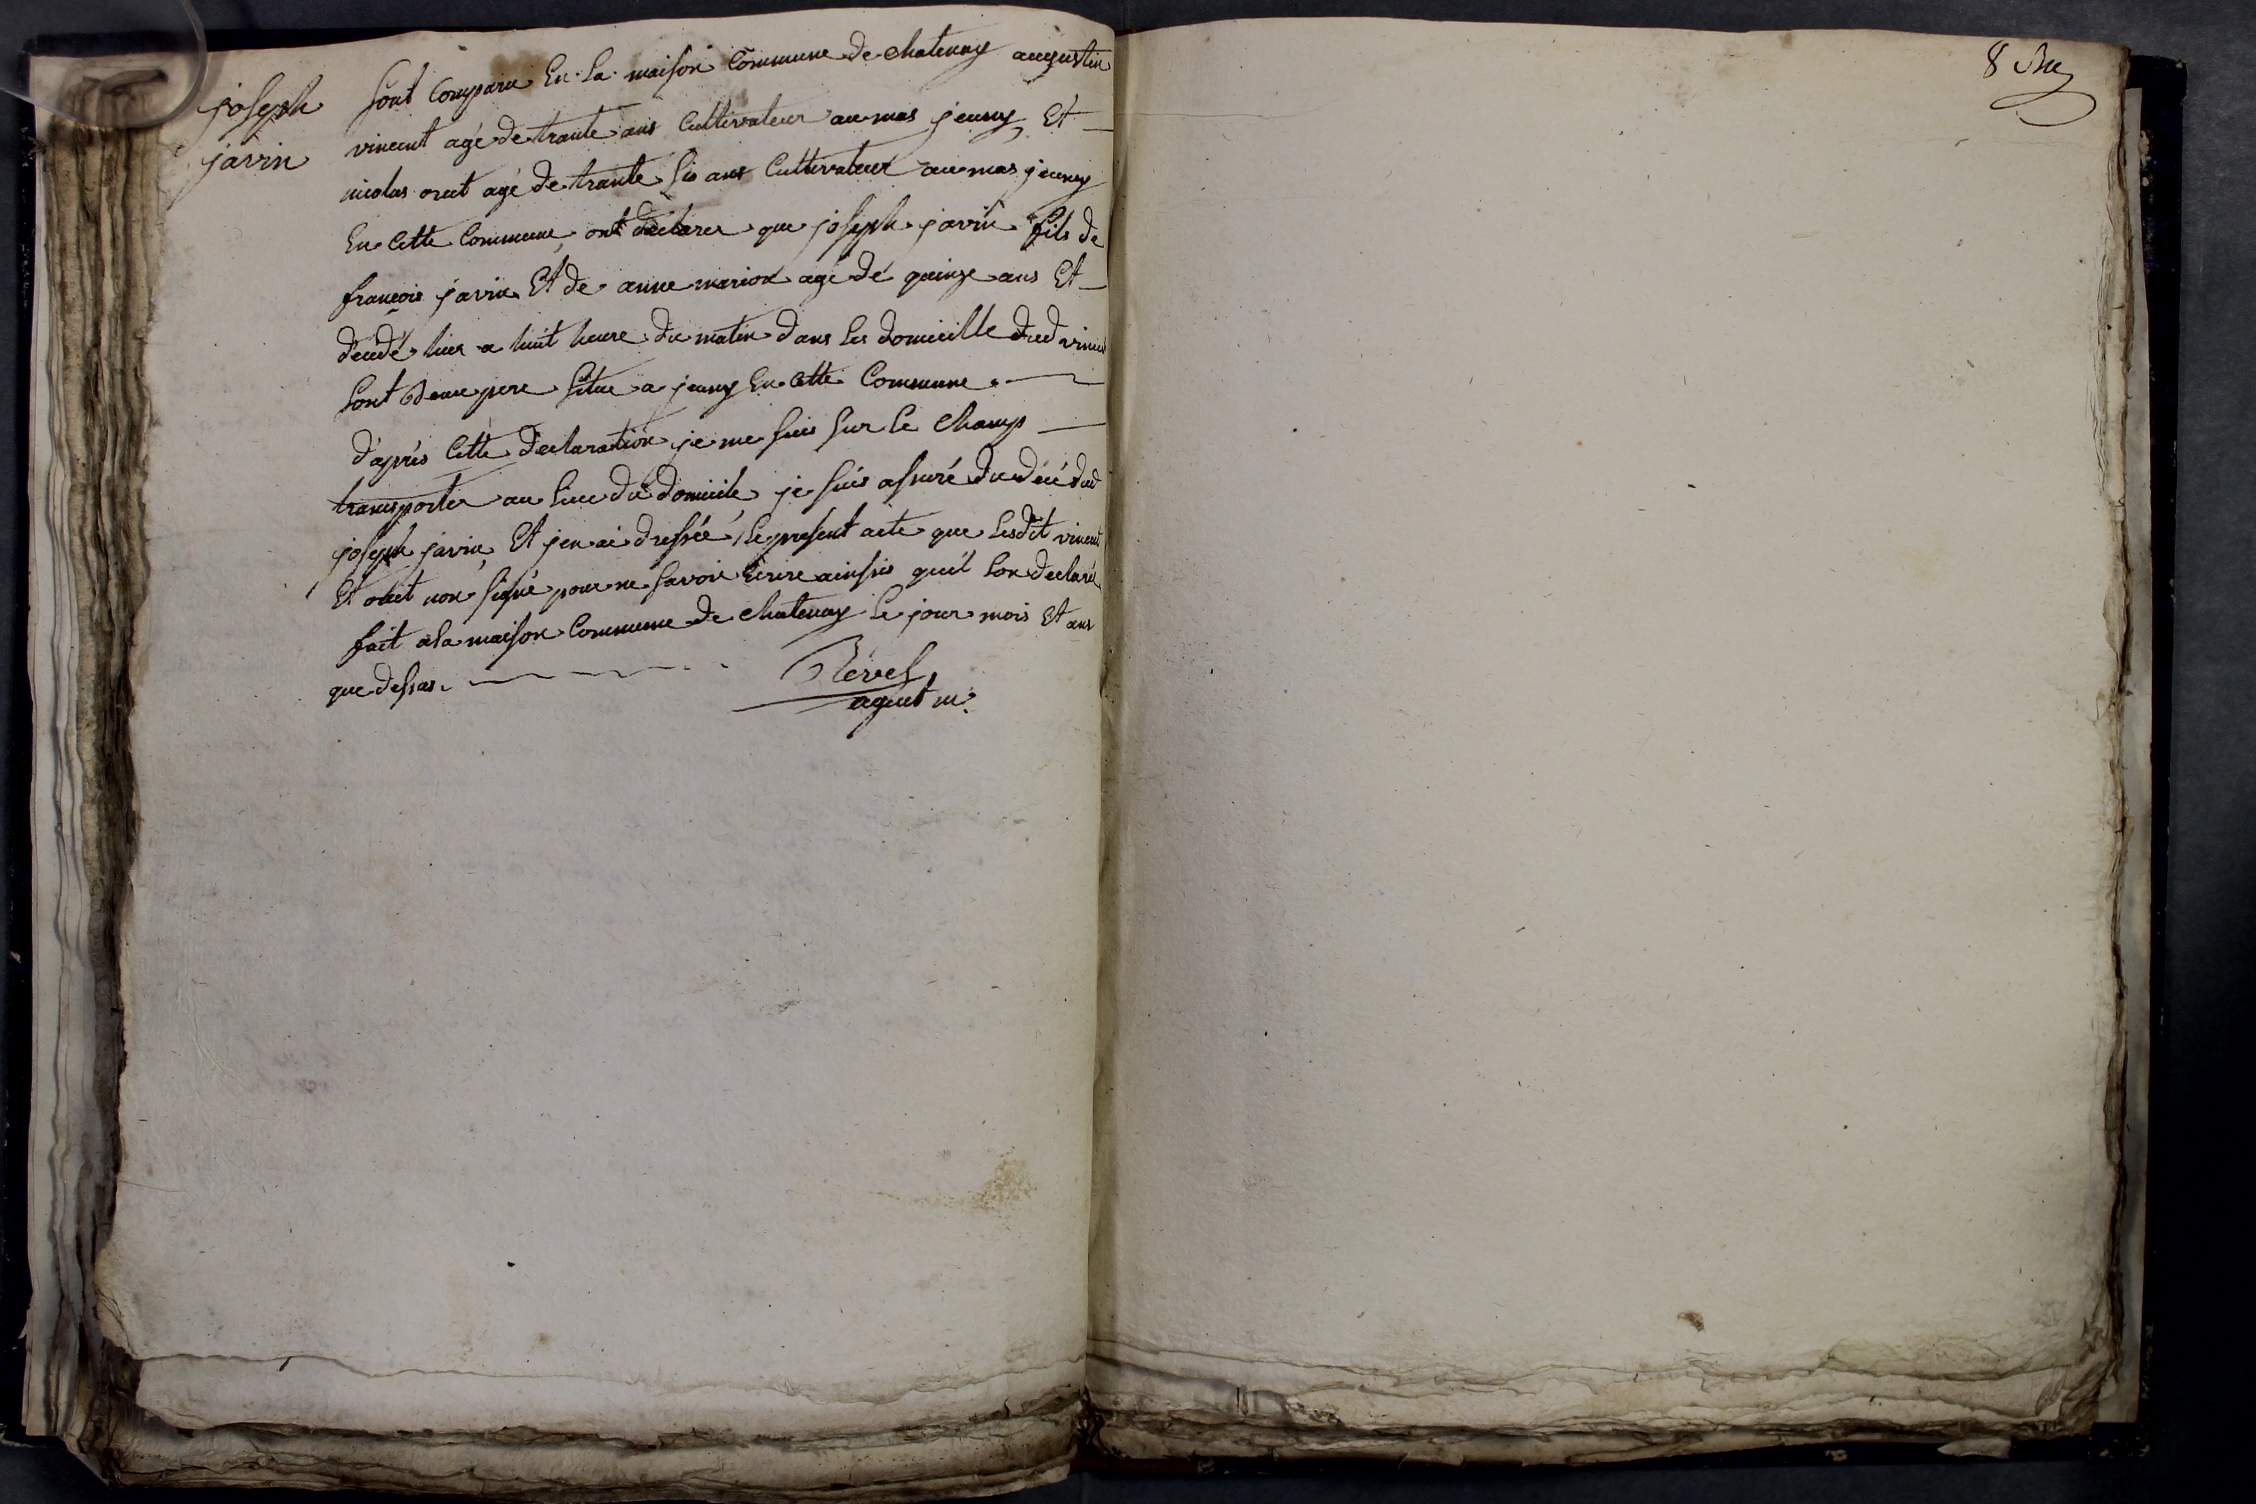 joseph
javin
sont Comparu En la maison Commune de chatenay augustin
vincent agé de trante ans Cultivateur au mas jeuny Et
nicolas orut agé de trante six ans Cultivateur au mas jeuny
En Cette Commune, ont déclarer que joseph javin fils de
françois javin Et de anne marion agé de quinze ans Et
décédé hier a huit heure du matin dans les domicille dud vincent
sont Beau pere situé a jeuny En Cette Commune.
d'après Cette declaration je me suis sur le champ
transporter au lieu du domicile, je suis assuré du décé dud
joseph javin, Et jen ai dressée, le present acte que lesdit vincent
Et orut non signé pour ne savoir Ecrire ainssis quil lon declaré
fait a la maison Commune de chatenay le jour mois Et ans
que dessus.
Revel
agent m.
8